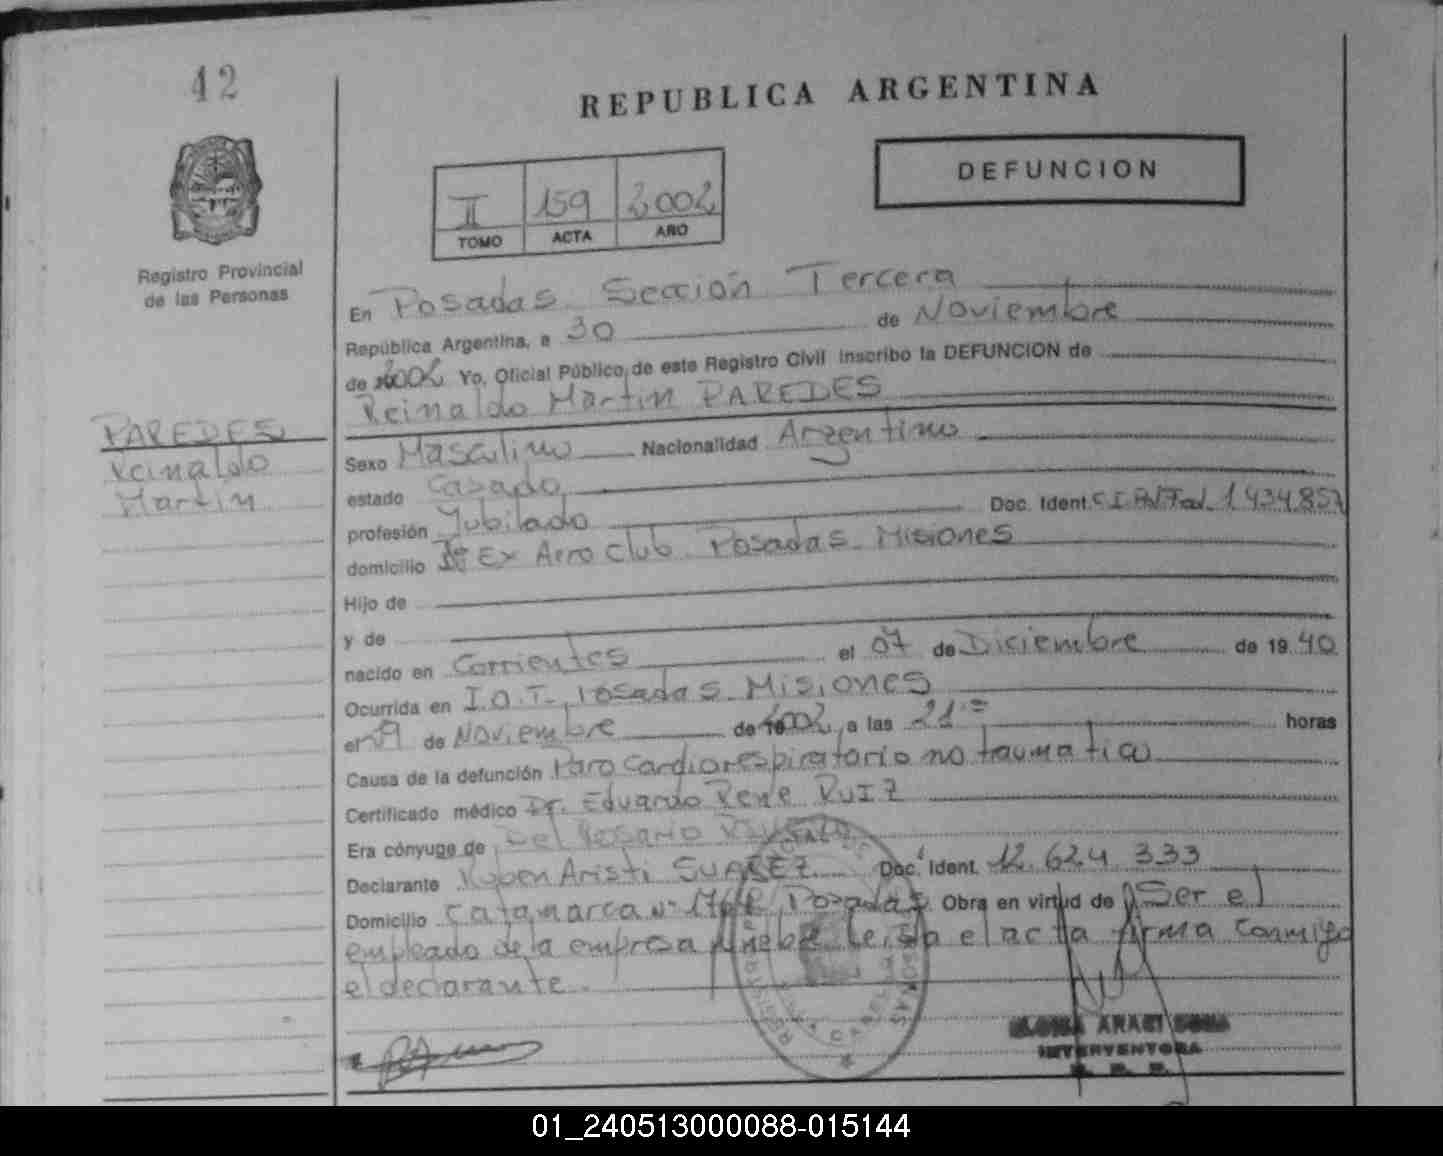 42
REPUBLICA ARGENTINA
DEFUNCION
II 159 2002
TOMO ACTA AÑO
Registro Provincial
de las Personas
En Posadas Sección Tercera
República Argentina, a 30 de Noviembre
de 2002 Yo, Oficial Público, de este Registro Civil inscribo la DEFUNCION de
Reinaldo Martin PAREDES
PAREDES
Reinaldo
Martin
Sexo Masculino Nacionalidad Argentino
estado Casado
profesión Jubilado Doc. Ident. C.I. 1434.857
domicilio Ex Aero Club Posadas Misiones
Hijo de
y de
nacido en Corrientes el 07 de Diciembre de 1940
Ocurrida en I.O.T. Posadas Misiones
el 29 de Noviembre de 2002, a las 21 horas
Causa de la defunción Paro Cardiorespiratorio no traumatico
Certificado médico Dr. Eduardo Rene RUIZ
Era cónyuge de Del Rosario
Declarante Ruben Aristi SUAREZ Doc. Ident. 12.624.333
Domicilio Catamarca Nº Posadas Obra en virtud de Ser el
empleado de la empresa Leida el acta firma conmigo
el declarante.
INTERVENTORA
01_240513000088-015144